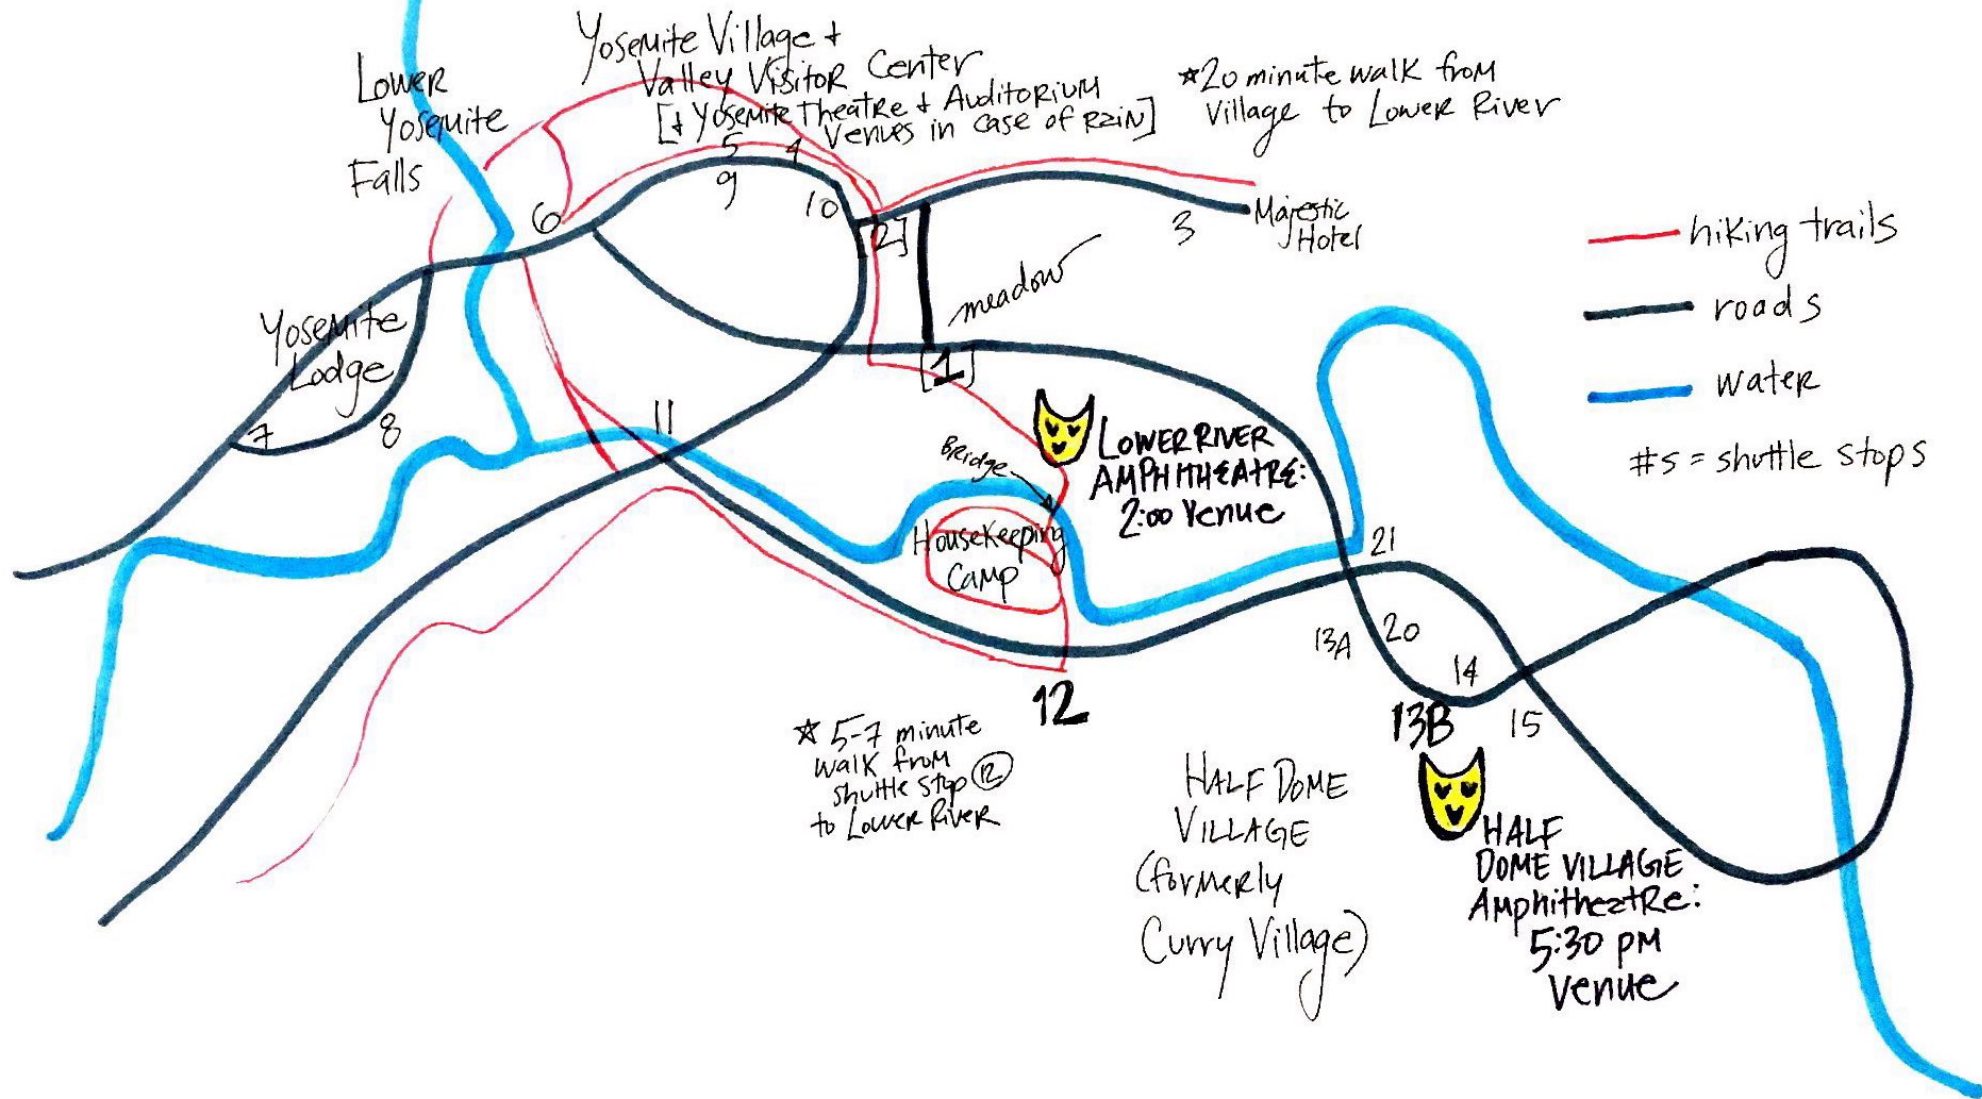 Yosemite Village +
Valley Visitor Center
[+ Yosemite Theatre + Auditorium
Venues in case of Rain]
*20 minute walk from
Village to Lower River
Lower
Yosemite
Falls
5
4
9
10
6
[2]
3
Majestic
Hotel
meadow
hiking trails
roads
water
#s = shuttle stops
Yosemite
Lodge
7
8
11
[1]
Bridge
Lower River
Amphitheatre:
2:00 Venue
Housekeeping
Camp
21
20
13A
14
13B
15
12
* 5-7 minute
walk from
shuttle stop 12
to Lower River
Half Dome
Village
(formerly
Curry Village)
Half
Dome Village
Amphitheatre:
5:30 pm
Venue